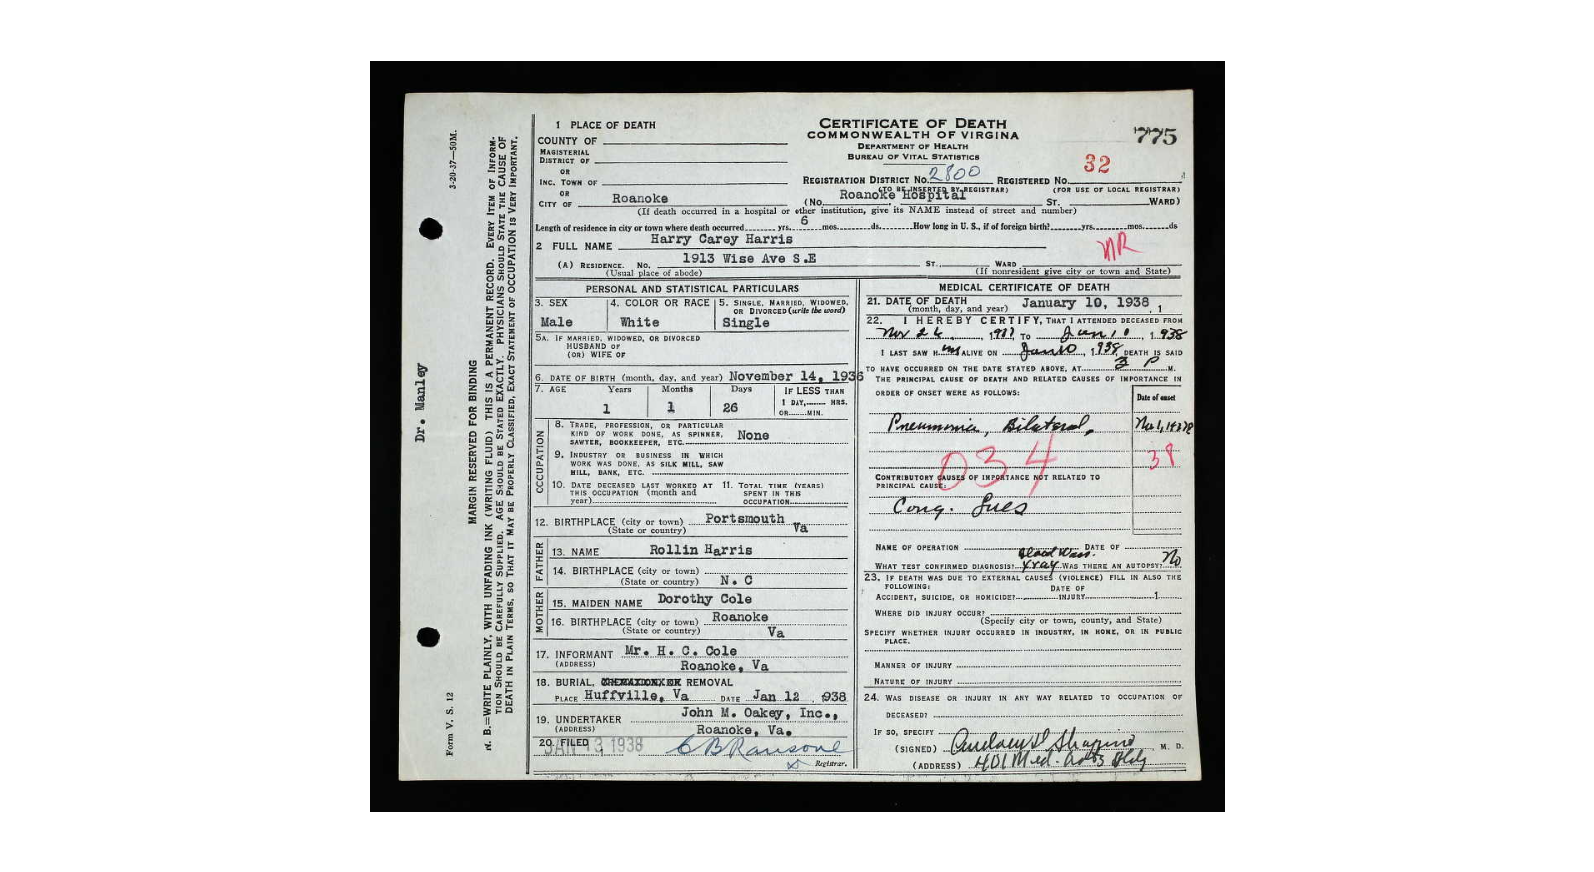 775
CERTIFICATE OF DEATH
COMMONWEALTH OF VIRGINA
DEPARTMENT OF HEALTH
BUREAU OF VITAL STATISTICS
1 PLACE OF DEATH
COUNTY OF
MAGISTERIAL
DISTRICT OF
OR
INC. TOWN OF
OR
CITY OF Roanoke
REGISTRATION DISTRICT No. 2800 REGISTERED No. 32
(TO BE INSERTED BY REGISTRAR) (FOR USE OF LOCAL REGISTRAR)
(No. Roanoke Hospital ST. WARD)
(If death occurred in a hospital or other institution, give its NAME instead of street and number)
Length of residence in city or town where death occurred yrs. 6 mos. ds. How long in U. S., if of foreign birth? yrs. mos. ds
2 FULL NAME Harry Carey Harris
NR
(A) RESIDENCE. No. 1913 Wise Ave S.E ST., WARD
(Usual place of abode) (If nonresident give city or town and State)
PERSONAL AND STATISTICAL PARTICULARS
3. SEX Male
4. COLOR OR RACE White
5. SINGLE, MARRIED, WIDOWED,
OR DIVORCED (write the word)
Single
5A. IF MARRIED, WIDOWED, OR DIVORCED
HUSBAND OF
(OR) WIFE OF
6. DATE OF BIRTH (month, day, and year) November 14, 1936
7. AGE Years Months Days IF LESS THAN
1 1 26 1 DAY, HRS.
OR MIN.
OCCUPATION
8. TRADE, PROFESSION, OR PARTICULAR
KIND OF WORK DONE, AS SPINNER,
SAWYER, BOOKKEEPER, ETC. None
9. INDUSTRY OR BUSINESS IN WHICH
WORK WAS DONE, AS SILK MILL, SAW
MILL, BANK, ETC.
10. DATE DECEASED LAST WORKED AT
THIS OCCUPATION (month and
year)
11. TOTAL TIME (YEARS)
SPENT IN THIS
OCCUPATION
12. BIRTHPLACE (city or town) Portsmouth
(State or country) Va
FATHER
13. NAME Rollin Harris
14. BIRTHPLACE (city or town)
(State or country) N. C
MOTHER
15. MAIDEN NAME Dorothy Cole
16. BIRTHPLACE (city or town) Roanoke
(State or country) Va
17. INFORMANT Mr. H. C. Cole
(ADDRESS) Roanoke, Va
18. BURIAL, REMOVAL
PLACE Huffville, Va DATE Jan 12 , 938
19. UNDERTAKER John M. Oakey, Inc.,
(ADDRESS) Roanoke, Va.
20. FILED JAN 13 1938 C B Ransone
Registrar.
MEDICAL CERTIFICATE OF DEATH
21. DATE OF DEATH
(month, day, and year) January 10, 1938
22. I HEREBY CERTIFY, THAT I ATTENDED DECEASED FROM
Nov 26, 1937 TO Jan 10, 1938
I LAST SAW H im ALIVE ON Jan 10, 1938 DEATH IS SAID
TO HAVE OCCURRED ON THE DATE STATED ABOVE, AT 3 P M.
THE PRINCIPAL CAUSE OF DEATH AND RELATED CAUSES OF IMPORTANCE IN
ORDER OF ONSET WERE AS FOLLOWS:
Date of onset
Pneumonia, Bilateral,
034
38
CONTRIBUTORY CAUSES OF IMPORTANCE NOT RELATED TO
PRINCIPAL CAUSE:
Cong. Lues
NAME OF OPERATION DATE OF
Blood Wass.
WHAT TEST CONFIRMED DIAGNOSIS? Xray WAS THERE AN AUTOPSY? No
23. IF DEATH WAS DUE TO EXTERNAL CAUSES (VIOLENCE) FILL IN ALSO THE
FOLLOWING:
DATE OF
ACCIDENT, SUICIDE, OR HOMICIDE? INJURY 1
WHERE DID INJURY OCCUR?
(Specify city or town, county, and State)
SPECIFY WHETHER INJURY OCCURRED IN INDUSTRY, IN HOME, OR IN PUBLIC
PLACE.
MANNER OF INJURY
NATURE OF INJURY
24. WAS DISEASE OR INJURY IN ANY WAY RELATED TO OCCUPATION OF
DECEASED?
IF SO, SPECIFY
(SIGNED) Shapiro M. D.
(ADDRESS) 401 Med. Arts Bldg
3-20-37—50M.
Dr. Manley
Form V. S. 12
MARGIN RESERVED FOR BINDING
N. B.—WRITE PLAINLY, WITH UNFADING INK (WRITING FLUID) THIS IS A PERMANENT RECORD. EVERY ITEM OF INFORM-
TION SHOULD BE CAREFULLY SUPPLIED. AGE SHOULD BE STATED EXACTLY. PHYSICIANS SHOULD STATE THE CAUSE OF
DEATH IN PLAIN TERMS, SO THAT IT MAY BE PROPERLY CLASSIFIED, EXACT STATEMENT OF OCCUPATION IS VERY IMPORTANT.